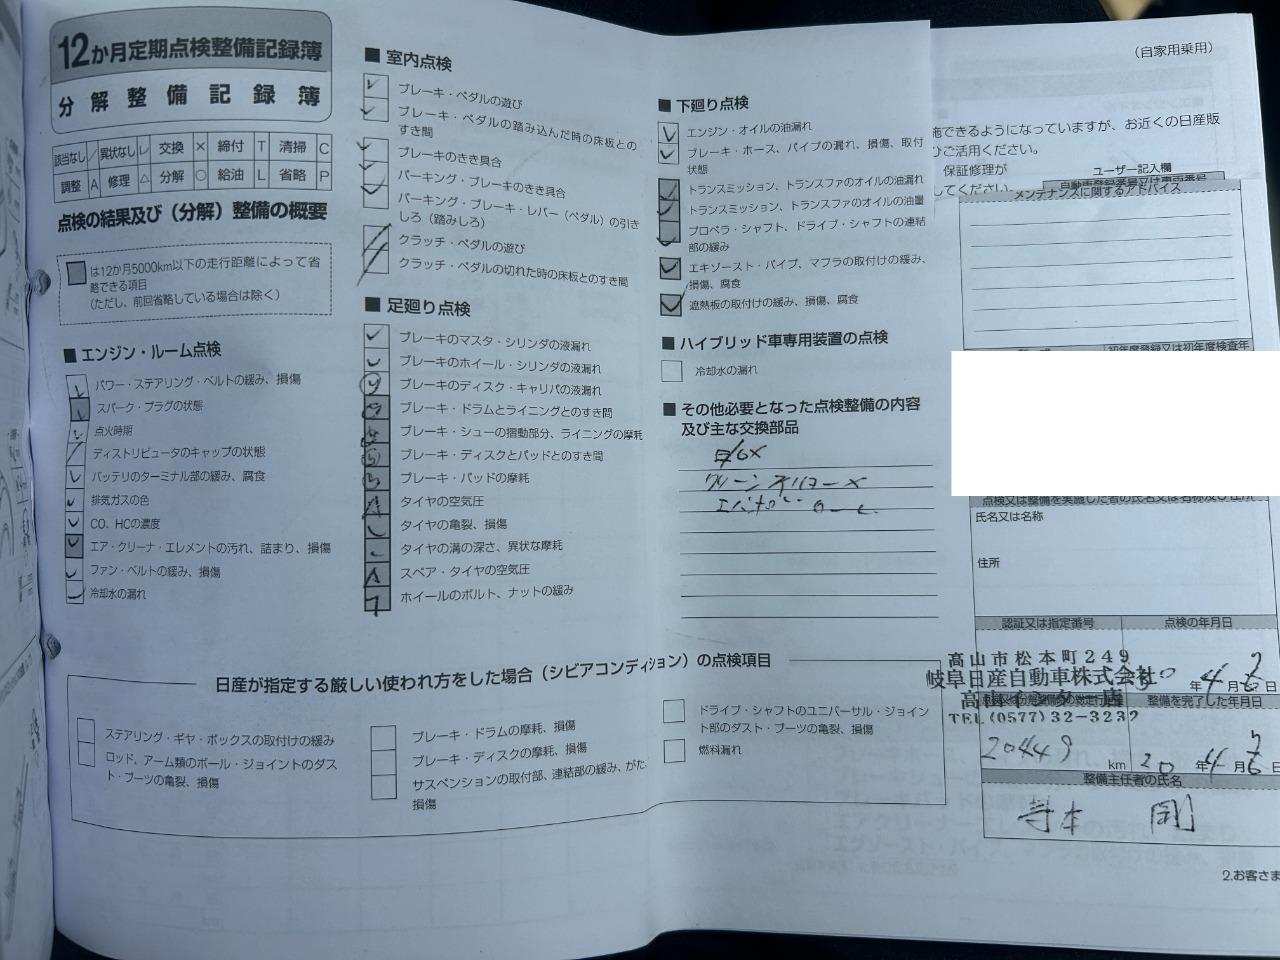 12か月定期点検整備記録簿
分解整備記録簿
該当なし / 異状なし レ 交換 × 締付 T 清掃 C
調整 A 修理 △ 分解 ○ 給油 L 省略 P
点検の結果及び（分解）整備の概要
は12か月5000km以下の走行距離によって省
略できる項目
（ただし、前回省略している場合は除く）
■ エンジン・ルーム点検
パワー・ステアリング・ベルトの緩み、損傷
スパーク・プラグの状態
点火時期
ディストリビュータのキャップの状態
バッテリのターミナル部の緩み、腐食
排気ガスの色
CO、HCの濃度
エア・クリーナ・エレメントの汚れ、詰まり、損傷
ファン・ベルトの緩み、損傷
冷却水の漏れ
■ 室内点検
ブレーキ・ペダルの遊び
ブレーキ・ペダルの踏み込んだ時の床板との
すき間
ブレーキのきき具合
パーキング・ブレーキのきき具合
パーキング・ブレーキ・レバー（ペダル）の引き
しろ（踏みしろ）
クラッチ・ペダルの遊び
クラッチ・ペダルの切れた時の床板とのすき間
■ 足廻り点検
ブレーキのマスタ・シリンダの液漏れ
ブレーキのホイール・シリンダの液漏れ
ブレーキのディスク・キャリパの液漏れ
ブレーキ・ドラムとライニングとのすき間
ブレーキ・シューの摺動部分、ライニングの摩耗
ブレーキ・ディスクとパッドとのすき間
ブレーキ・パッドの摩耗
タイヤの空気圧
タイヤの亀裂、損傷
タイヤの溝の深さ、異状な摩耗
スペア・タイヤの空気圧
ホイールのボルト、ナットの緩み
■ 下廻り点検
エンジン・オイルの油漏れ
ブレーキ・ホース、パイプの漏れ、損傷、取付
状態
トランスミッション、トランスファのオイルの油漏れ
トランスミッション、トランスファのオイルの油量
プロペラ・シャフト、ドライブ・シャフトの連結
部の緩み
エキゾースト・パイプ、マフラの取付けの緩み、
損傷、腐食
遮熱板の取付けの緩み、損傷、腐食
■ ハイブリッド車専用装置の点検
冷却水の漏れ
■ その他必要となった点検整備の内容
及び主な交換部品
日産が指定する厳しい使われ方をした場合（シビアコンディション）の点検項目
ステアリング・ギヤ・ボックスの取付けの緩み
ロッド、アーム類のボール・ジョイントのダス
ト・ブーツの亀裂、損傷
ブレーキ・ドラムの摩耗、損傷
ブレーキ・ディスクの摩耗、損傷
サスペンションの取付部、連結部の緩み、がた、
損傷
ドライブ・シャフトのユニバーサル・ジョイン
ト部のダスト・ブーツの亀裂、損傷
燃料漏れ
（自家用乗用）
施できるようになっていますが、お近くの日産販
ひご活用ください。
保証修理が
してください。
ユーザー記入欄
メンテナンスに関するアドバイス
初年度登録又は初年度検査年
点検又は整備を実施した者の氏名又は名称及び住所
氏名又は名称
住所
認証又は指定番号
点検の年月日
高山市松本町249
岐阜日産自動車株式会社
高山インター店
TEL (0577) 32-3232
年 4 月 日
整備を完了した年月日
20449 km
20 年 4 月 日
整備主任者の氏名
寺本 剛
2.お客さま